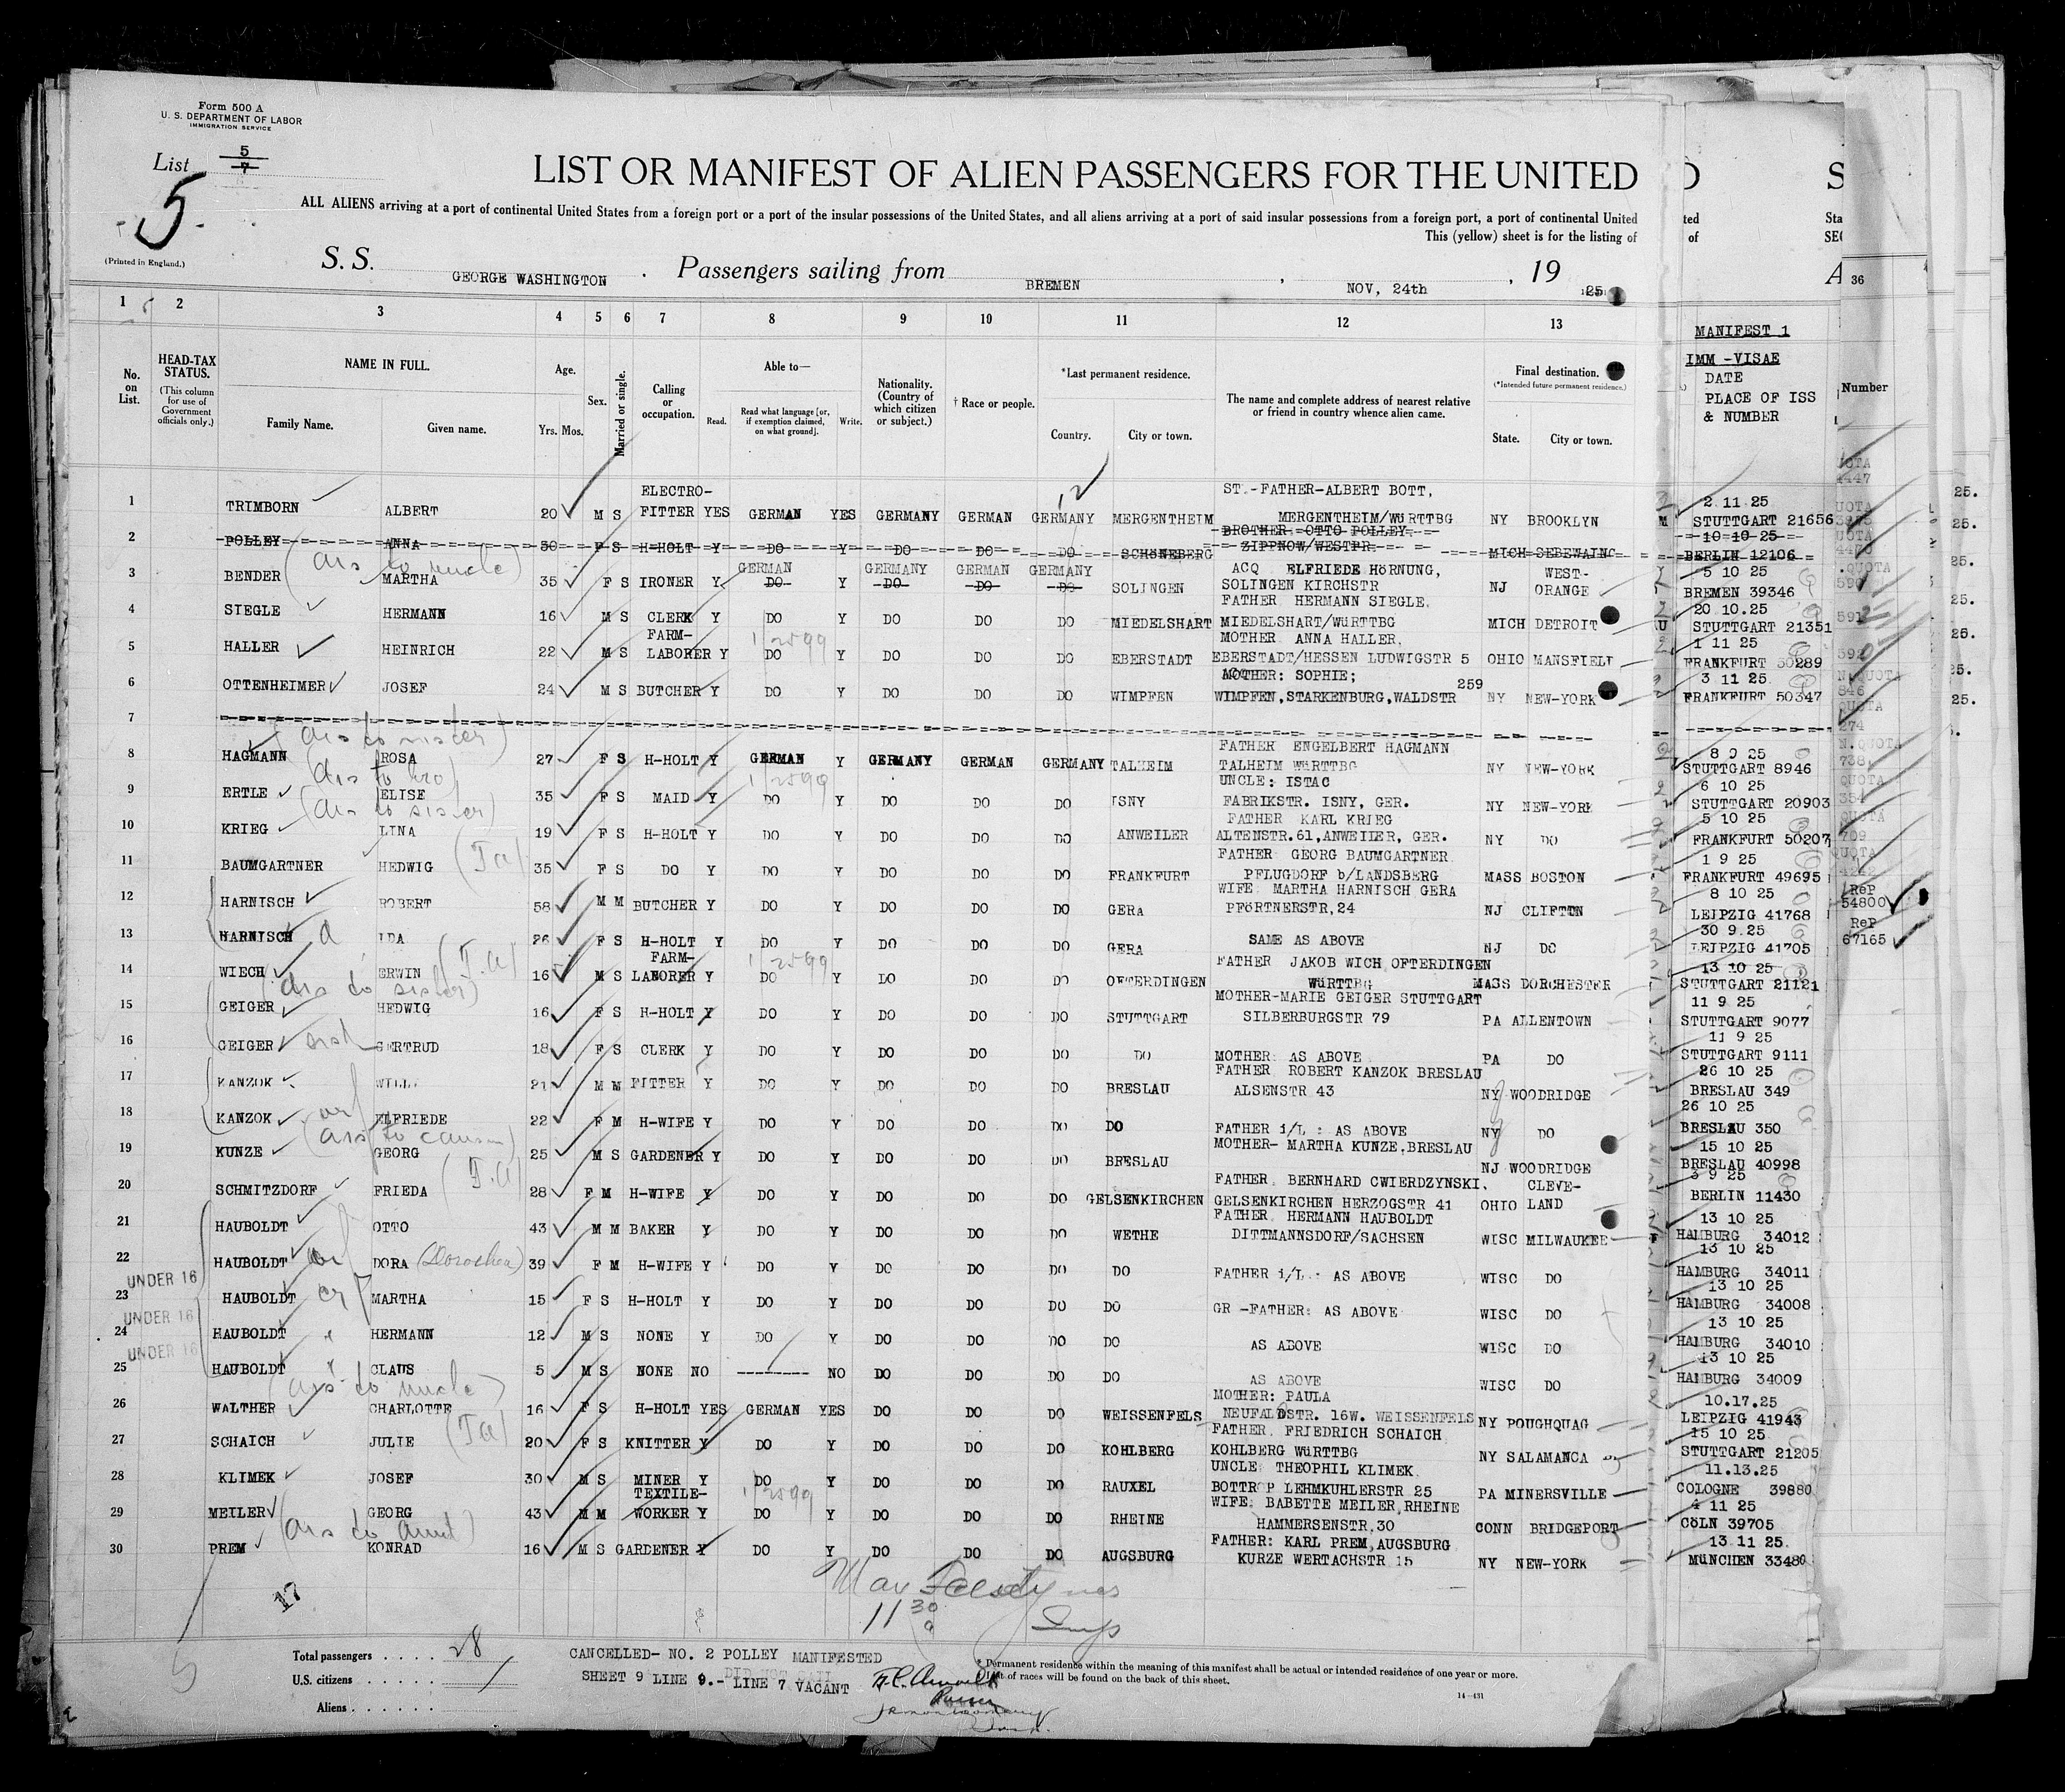 Form 500 A
U. S. DEPARTMENT OF LABOR
IMMIGRATION SERVICE
List 5 7
5.
(Printed in England.)
LIST OR MANIFEST OF ALIEN PASSENGERS FOR THE UNITED
ALL ALIENS arriving at a port of continental United States from a foreign port or a port of the insular possessions of the United States, and all aliens arriving at a port of said insular possessions from a foreign port, a port of continental United
This (yellow) sheet is for the listing of
S. S. GEORGE WASHINGTON . Passengers sailing from BREMEN , NOV, 24th , 19 25
1 2 3 4 5 6 7 8 9 10 11 12 13
No. on List.
HEAD-TAX STATUS. (This column for use of Government officials only.)
NAME IN FULL. Family Name. Given name.
Age. Yrs. Mos.
Sex.
Married or single.
Calling or occupation.
Able to— Read. Read what language [or, if exemption claimed, on what ground]. Write.
Nationality. (Country of which citizen or subject.)
† Race or people.
*Last permanent residence. Country. City or town.
The name and complete address of nearest relative or friend in country whence alien came.
Final destination. (*Intended future permanent residence.) State. City or town.
MANIFEST 1
IMM -VISAE
DATE
PLACE OF ISS
& NUMBER
36
Number
ELECTRO- ST.-FATHER-ALBERT BOTT, 2 11 25
1 TRIMBORN ALBERT 20 M S FITTER YES GERMAN YES GERMANY GERMAN GERMANY MERGENTHEIM MERGENTHEIM/WüRTTBG NY BROOKLYN M STUTTGART 21656
BROTHER OTTO POLLEY 10 10 25
2 POLLEY ANNA 50 F S H-HOLT Y DO Y DO DO DO SCHöNEBERG ZIPPNOW/WESTPR. MICH SEBEWAING BERLIN 12106
(dis to uncle) GERMAN GERMANY GERMAN GERMANY ACQ ELFRIEDE HöRNUNG, WEST- 5 10 25
3 BENDER MARTHA 35 F S IRONER Y DO Y DO DO DO SOLINGEN SOLINGEN KIRCHSTR NJ ORANGE BREMEN 39346
FATHER HERMANN SIEGLE, 20 10.25
4 SIEGLE HERMANN 16 M S CLERK Y DO Y DO DO DO MIEDELSHART MIEDELSHART/WüRTTBG MICH DETROIT STUTTGART 21351
FARM- 1/2599 MOTHER ANNA HALLER, 1 11 25
5 HALLER HEINRICH 22 M S LABORER Y DO Y DO DO DO EBERSTADT EBERSTADT/HESSEN LUDWIGSTR 5 OHIO MANSFIELD FRANKFURT 50289
MOTHER: SOPHIE; 259 3 11 25
6 OTTENHEIMER JOSEF 24 M S BUTCHER Y DO Y DO DO DO WIMPFEN WIMPFEN,STARKENBURG,WALDSTR NY NEW-YORK FRANKFURT 50347
7
(dis to sister) FATHER ENGELBERT HAGMANN 8 9 25
8 HAGMANN ROSA 27 F S H-HOLT Y GERMAN Y GERMANY GERMAN GERMANY TALHEIM TALHEIM WüRTTBG NY NEW-YORK STUTTGART 8946
(dis to bro) 1/2599 UNCLE: ISTAC 6 10 25
9 ERTLE ELISE 35 F S MAID Y DO Y DO DO DO ISNY FABRIKSTR. ISNY, GER. NY NEW-YORK STUTTGART 20903
(dis to sister) FATHER KARL KRIEG 5 10 25
10 KRIEG LINA 19 F S H-HOLT Y DO Y DO DO DO ANWEILER ALTENSTR.61,ANWEILER, GER. NY DO FRANKFURT 50207
FATHER GEORG BAUMGARTNER 1 9 25
11 BAUMGARTNER HEDWIG 35 F S DO Y DO Y DO DO DO FRANKFURT PFLUGDORF b/LANDSBERG MASS BOSTON FRANKFURT 49695
WIFE MARTHA HARNISCH GERA 8 10 25 ReP 54800
12 HARNISCH ROBERT 58 M M BUTCHER Y DO Y DO DO DO GERA PFöRTNERSTR,24 NJ CLIFTON LEIPZIG 41768
30 9.25 ReP 67165
13 HARNISCH d IDA 26 F S H-HOLT Y DO Y DO DO DO GERA SAME AS ABOVE NJ DO LEIPZIG 41705
FARM- 1/2599 FATHER JAKOB WICH OFTERDINGEN 13 10 25
14 WIECH ERWIN 16 M S LABORER Y DO Y DO DO DO OFTERDINGEN WüRTTBG MASS DORCHESTER STUTTGART 21121
(dis to sister) MOTHER-MARIE GEIGER STUTTGART 11 9 25
15 GEIGER HEDWIG 16 F S H-HOLT Y DO Y DO DO DO STUTTGART SILBERBURGSTR 79 PA ALLENTOWN STUTTGART 9077
11 9 25
16 GEIGER sist GERTRUD 18 F S CLERK Y DO Y DO DO DO DO MOTHER: AS ABOVE PA DO STUTTGART 9111
FATHER ROBERT KANZOK BRESLAU 26 10 25
17 KANZOK WILLI 21 M M FITTER Y DO Y DO DO DO BRESLAU ALSENSTR 43 NY WOODRIDGE BRESLAU 349
26 10 25
18 KANZOK wf ELFRIEDE 22 F M H-WIFE Y DO Y DO DO DO DO FATHER i/L : AS ABOVE NY DO BRESLAU 350
MOTHER- MARTHA KUNZE,BRESLAU 15 10 25
19 KUNZE GEORG 25 M S GARDENER Y DO Y DO DO DO BRESLAU NJ WOODRIDGE BRESLAU 40998
FATHER BERNHARD CWIERDZYNSKI, CLEVE- 3 9 25
20 SCHMITZDORF FRIEDA 28 F M H-WIFE Y DO Y DO DO DO GELSENKIRCHEN GELSENKIRCHEN HERZOGSTR 41 OHIO LAND BERLIN 11430
FATHER HERMANN HAUBOLDT 13 10 25
21 HAUBOLDT OTTO 43 M M BAKER Y DO Y DO DO DO WETHE DITTMANNSDORF/SACHSEN WISC MILWAUKEE HAMBURG 34012
13 10 25
22 HAUBOLDT wf DORA (Dorothea) 39 F M H-WIFE Y DO Y DO DO DO DO FATHER i/L : AS ABOVE WISC DO HAMBURG 34011
UNDER 16 13 10 25
23 HAUBOLDT MARTHA 15 F S H-HOLT Y DO Y DO DO DO DO GR -FATHER: AS ABOVE WISC DO HAMBURG 34008
UNDER 16 13 10 25
24 HAUBOLDT HERMANN 12 M S NONE Y DO Y DO DO DO DO AS ABOVE WISC DO HAMBURG 34010
UNDER 16 13 10 25
25 HAUBOLDT CLAUS 5 M S NONE NO -------- NO DO DO DO DO AS ABOVE WISC DO HAMBURG 34009
(dis to uncle) MOTHER: PAULA 10.17.25
26 WALTHER CHARLOTTE 16 F S H-HOLT YES GERMAN YES DO DO DO WEISSENFELS NEUFALDSTR. 16W. WEISSENFELS NY POUGHQUAG LEIPZIG 41943
FATHER FRIEDRICH SCHAICH 15 10 25
27 SCHAICH JULIE 20 F S KNITTER Y DO Y DO DO DO KOHLBERG KOHLBERG WüRTTBG NY SALAMANCA STUTTGART 21205
UNCLE THEOPHIL KLIMEK 11.13.25
28 KLIMEK JOSEF 30 M S MINER Y DO Y DO DO DO RAUXEL BOTTROP LEHMKUHLERSTR 25 PA MINERSVILLE COLOGNE 39880
TEXTILE- 1/2599 WIFE: BABETTE MEILER,RHEINE 4 11 25
29 MEILER GEORG 43 M M WORKER Y DO Y DO DO DO RHEINE HAMMERSENSTR,30 CONN BRIDGEPORT CöLN 39705
(dis to Aunt) FATHER: KARL PREM,AUGSBURG 13 11 25
30 PREM KONRAD 16 M S GARDENER Y DO Y DO DO DO AUGSBURG KURZE WERTACHSTR 15 NY NEW-YORK MüNCHEN 33480
17
11 30 a
Insp
Total passengers . . . . 28
U.S. citizens . . . . . .
Aliens . . . . . .
CANCELLED- NO. 2 POLLEY MANIFESTED
SHEET 9 LINE 9.- LINE 7 VACANT
DID NOT SAIL
* Permanent residence within the meaning of this manifest shall be actual or intended residence of one year or more.
† List of races will be found on the back of this sheet.
14—431